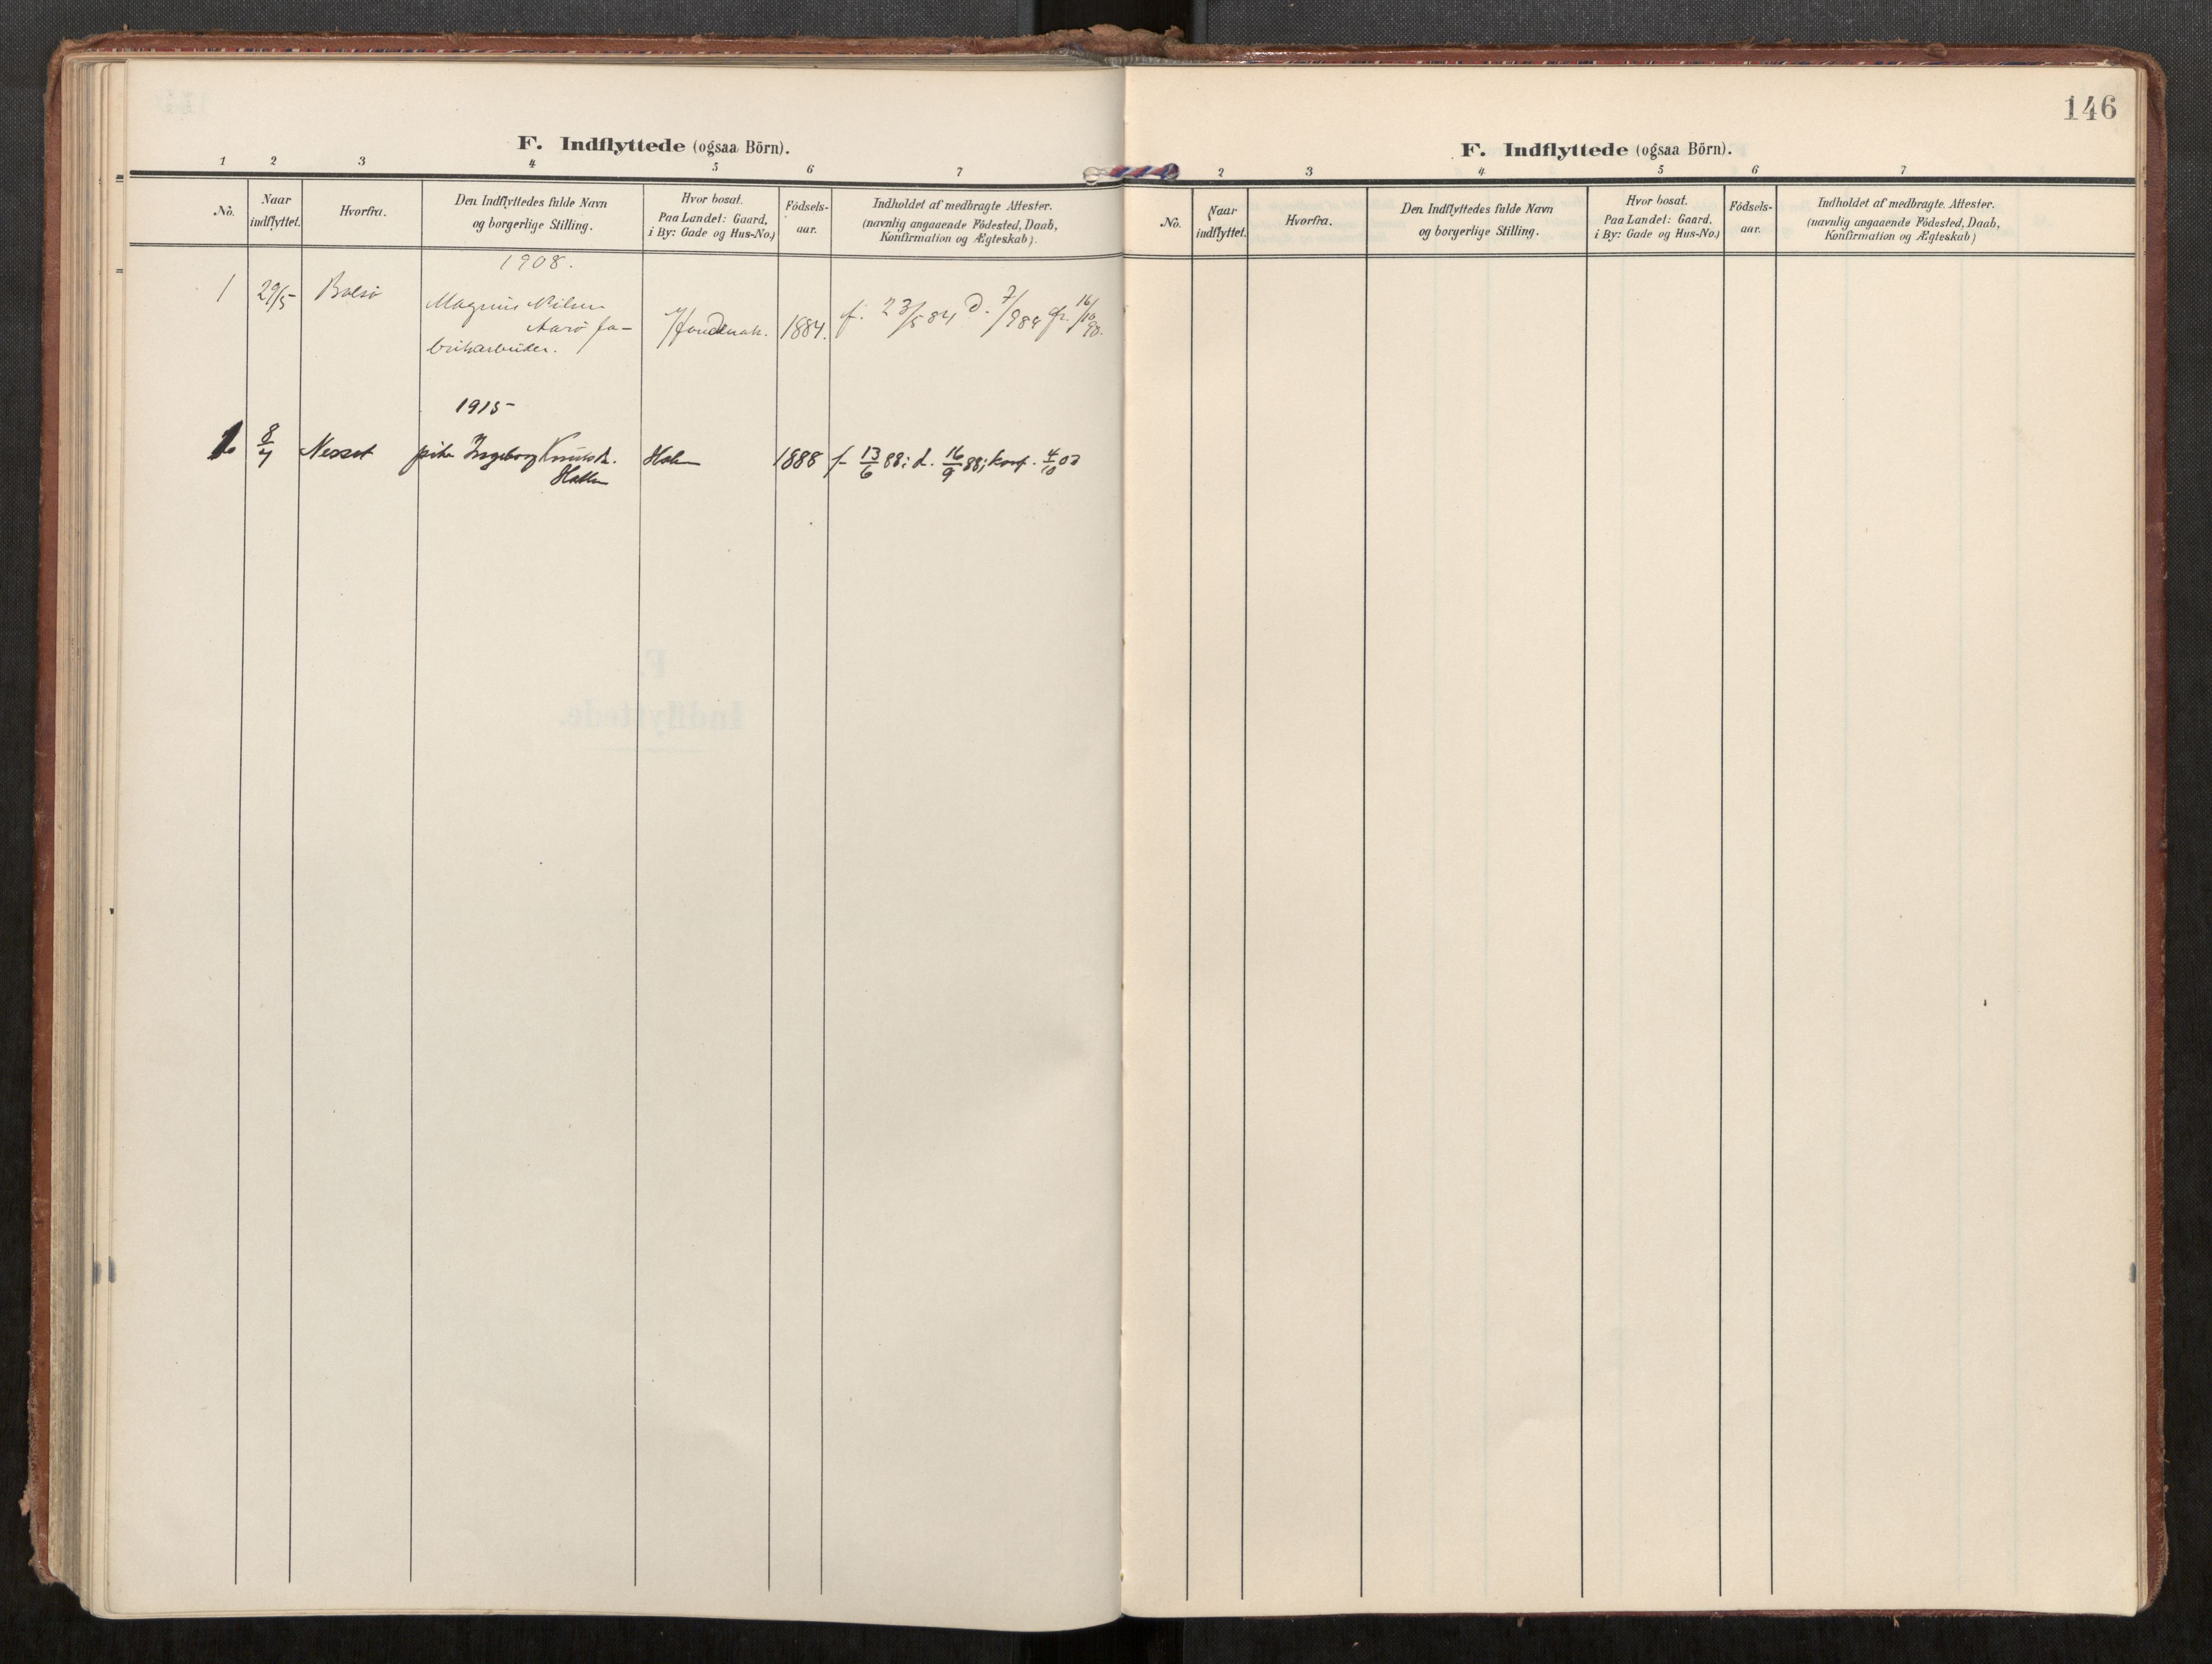 146
F. Indflyttede (ogsaa Börn).
1 2 3 4 5 6 7
No.
Naar indflyttet.
Hvorfra.
Den Indflyttedes fulde Navn
og borgerlige Stilling.
Hvor bosat.
Paa Landet: Gaard,
i By: Gade og Hus-No.)
Födsels-
aar.
Indholdet af medbragte Attester.
(navnlig angaaende Födested, Daab,
Konfirmation og Ægteskab).
1908.
1 29/5 Bolsö Magnus Nilsen
Aarö fa-
brikarbeider.
1884. f. 23/5 84 d. 7/9 84 16/10 98.
1915
8/4 Nesset pike Ingeborg Knutsd.
1888 f 13/6 88; d. 16/9 88; konf. 4/10 03
F. Indflyttede (ogsaa Börn).
2 3 4 5 6 7
No.
Naar
indflyttet.
Hvorfra.
Den Indflyttedes fulde Navn
og borgerlige Stilling.
Hvor bosat.
Paa Landet: Gaard,
i By: Gade og Hus-No.)
Födsels-
aar.
Indholdet af medbragte Attester.
(navnlig angaaende Födested, Daab,
Konfirmation og Ægteskab)